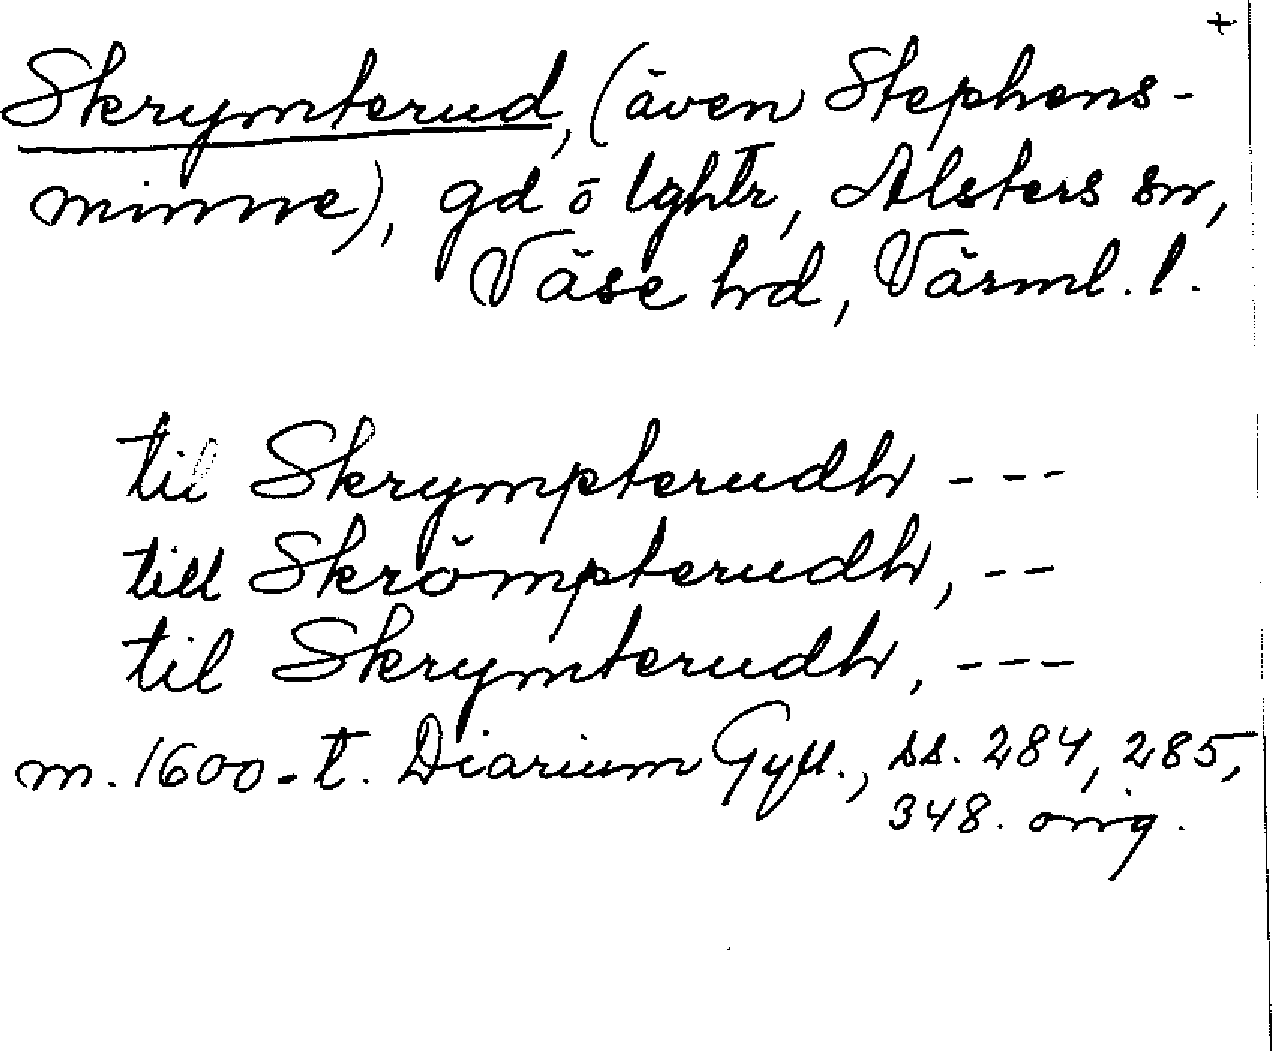 +
Skrymterud, (även Stephens-
minne), gd o lghtr, Alsters sn,
Väse hd, Värml. l.
til Skrympterudh ---
till Skrömpterudh, --
til Skrymterudh, ---
m. 1600-t. Diarium Gyll., ss. 284, 285,
348. orig.